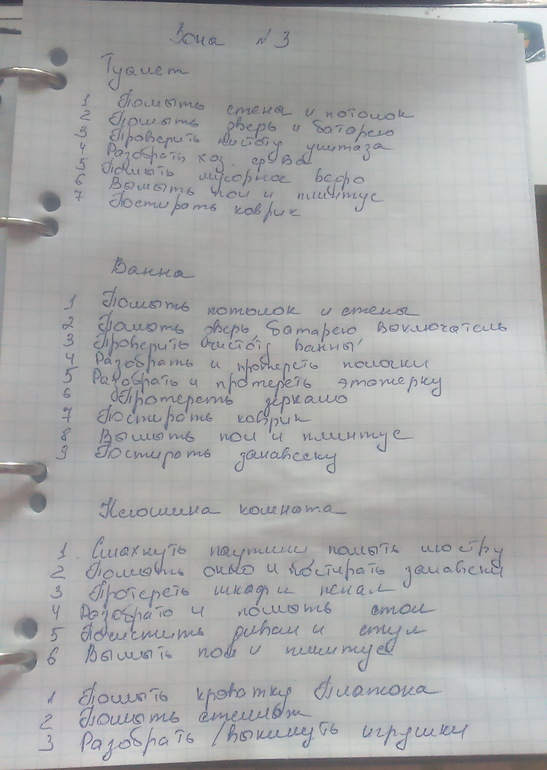 Зона №3
Туалет
1 Помыть стены и потолок
2 Помыть дверь и батарею
3 Проверить чистоту унитаза
4 Разобрать хоз. ср-ва
5 Помыть мусорное ведро
6 Вымыть пол и плинтус
7 Постирать коврик
Ванна
1 Помыть потолок и стены
2 Помыть дверь, батарею выключатель
3 Проверить чистоту ванны
4 Разобрать и протереть полочки
5 Разобрать и протереть этажерку
6 Протереть зеркало
7 Постирать коврик
8 Вымыть пол и плинтус
9 Постирать занавеску
Ксюшина комната
1 Смахнуть паутины помыть люстру
2 Помыть окно и постирать занавески
3 Протереть шкаф и пенал
4 Разобрать и помыть стол
5 Почистить диван и стул
6 Вымыть пол и плинтус
1 Помыть кроватку Платона
2 Помыть стеллаж
3 Разобрать/выкинуть игрушки